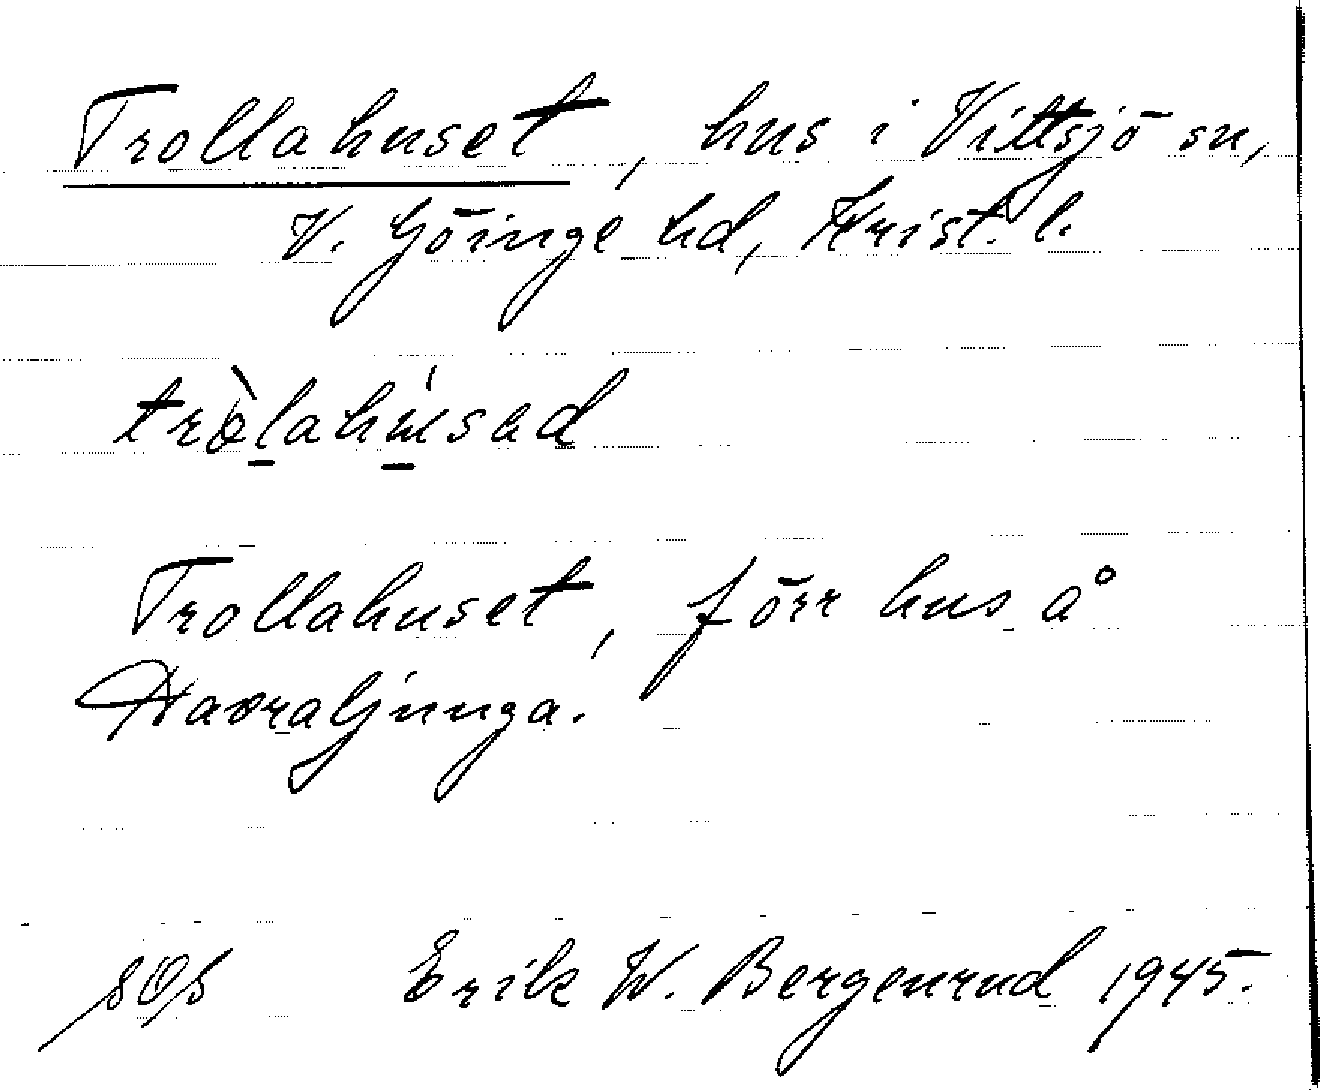 Trollahuset, hus i Vittsjö sn,
V. Göinge hd, Krist. l.
Trollahuset, förr hus å
Havraljunga.
Erik W. Bergenrud 1945.